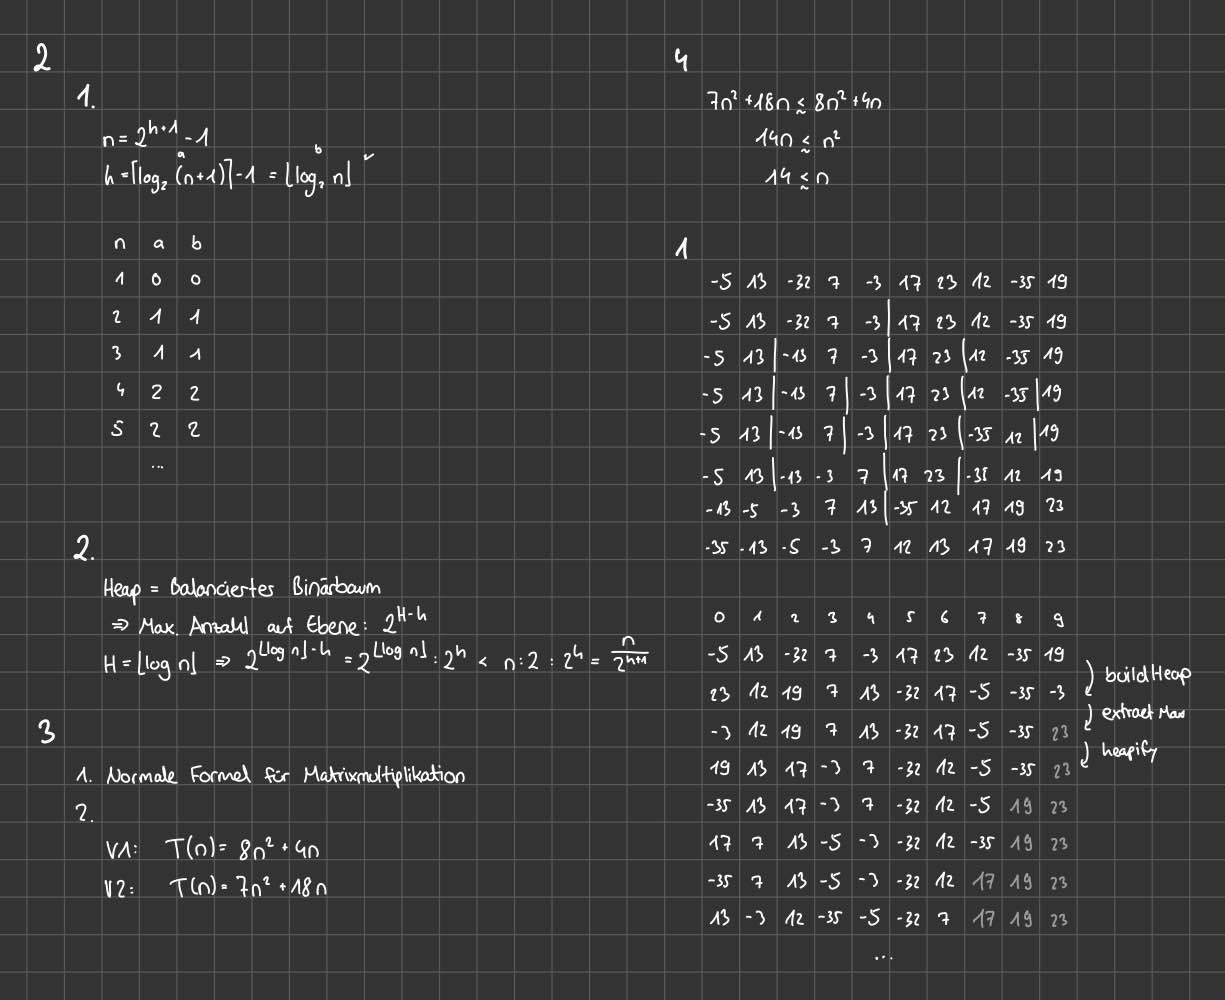 2
1.
n = 2^{h+1} - 1
h = ⌈log₂ (n+1)⌉ - 1 = ⌊log₂ n⌋ ✓
a b
n a b
1 0 0
2 1 1
3 1 1
4 2 2
5 2 2
...
2.
Heap = Balanciertes Binärbaum
⇒ Max. Anzahl auf Ebene: 2^{H-h}
H = ⌊log n⌋ ⇒ 2^{⌊log n⌋-h} = 2^{⌊log n⌋} : 2^h < n : 2 : 2^h = n/2^{h+1}
3
1. Normale Formel für Matrixmultiplikation
2.
V1: T(n) = 8n² + 4n
V2: T(n) = 7n² + 18n
4
7n² + 18n ≤ 8n² + 4n
14n ≤ n²
14 ≤ n
1
-5 13 -32 7 -3 17 23 12 -35 19
-5 13 -32 7 -3 | 17 23 12 -35 19
-5 13 | -13 7 -3 | 17 23 | 12 -35 19
-5 13 | -13 7 | -3 | 17 23 | 12 -35 | 19
-5 13 | -13 7 | -3 | 17 23 | -35 12 | 19
-5 13 | -13 -3 7 | 17 23 | -35 12 19
-13 -5 -3 7 13 | -35 12 17 19 23
-35 -13 -5 -3 7 12 13 17 19 23
0 1 2 3 4 5 6 7 8 9
-5 13 -32 7 -3 17 23 12 -35 19
buildHeap
23 12 19 7 13 -32 17 -5 -35 -3
extract Max
-3 12 19 7 13 -32 17 -5 -35 23
heapify
19 13 17 -3 7 -32 12 -5 -35 23
-35 13 17 -3 7 -32 12 -5 19 23
17 7 13 -5 -3 -32 12 -35 19 23
-35 7 13 -5 -3 -32 12 17 19 23
13 -3 12 -35 -5 -32 7 17 19 23
...